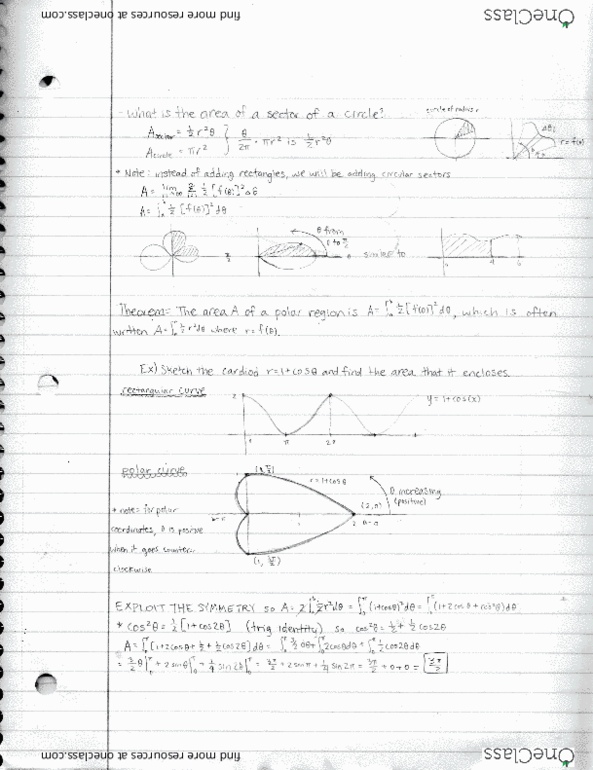 find more resources at oneclass.com
OneClass
- What is the area of a sector of a circle?
circle of radius r
A sector = ½ r²θ } θ/2π · πr² is ½ r²θ
A circle = πr²
Δθ
r = f(θ)
* Note: instead of adding rectangles, we will be adding circular sectors
½ [f(θ)]² Δθ
A = ∫ ½ [f(θ)]² dθ
θ from
similar to
Theorem: The area A of a polar region is A = ∫ ½ [f(θ)]² dθ, which is often
written A = ∫ ½ r² dθ where r = f(θ).
Ex) Sketch the cardiod r = 1 + cosθ and find the area that it encloses.
rectangular curve
2
y = 1 + cos(x)
π 2π
polar curve
(1, π/2)
r = 1 + cosθ
θ increasing
(positive)
* note: for polar
coordinates, θ is positive
when it goes counter-
clockwise
2
EXPLOIT THE SYMMETRY so A = 2 ∫ ½ r² dθ = ∫ (1+cosθ)² dθ = ∫ (1+2cosθ+cos²θ) dθ
* cos²θ = ½ [1 + cos2θ] (trig identity) so cos²θ = ½ + ½ cos2θ
A = ∫ (1+2cosθ+½+½cos2θ) dθ = ∫ 3/2 dθ + ∫ 2cosθdθ + ∫ ½ cos2θ dθ
= 3/2 θ + 2 sinθ + ¼ sin2θ = 3π/2 + 2sinπ + ¼ sin2π = 3π/2 + 0 + 0 = 3π/2
find more resources at oneclass.com
OneClass